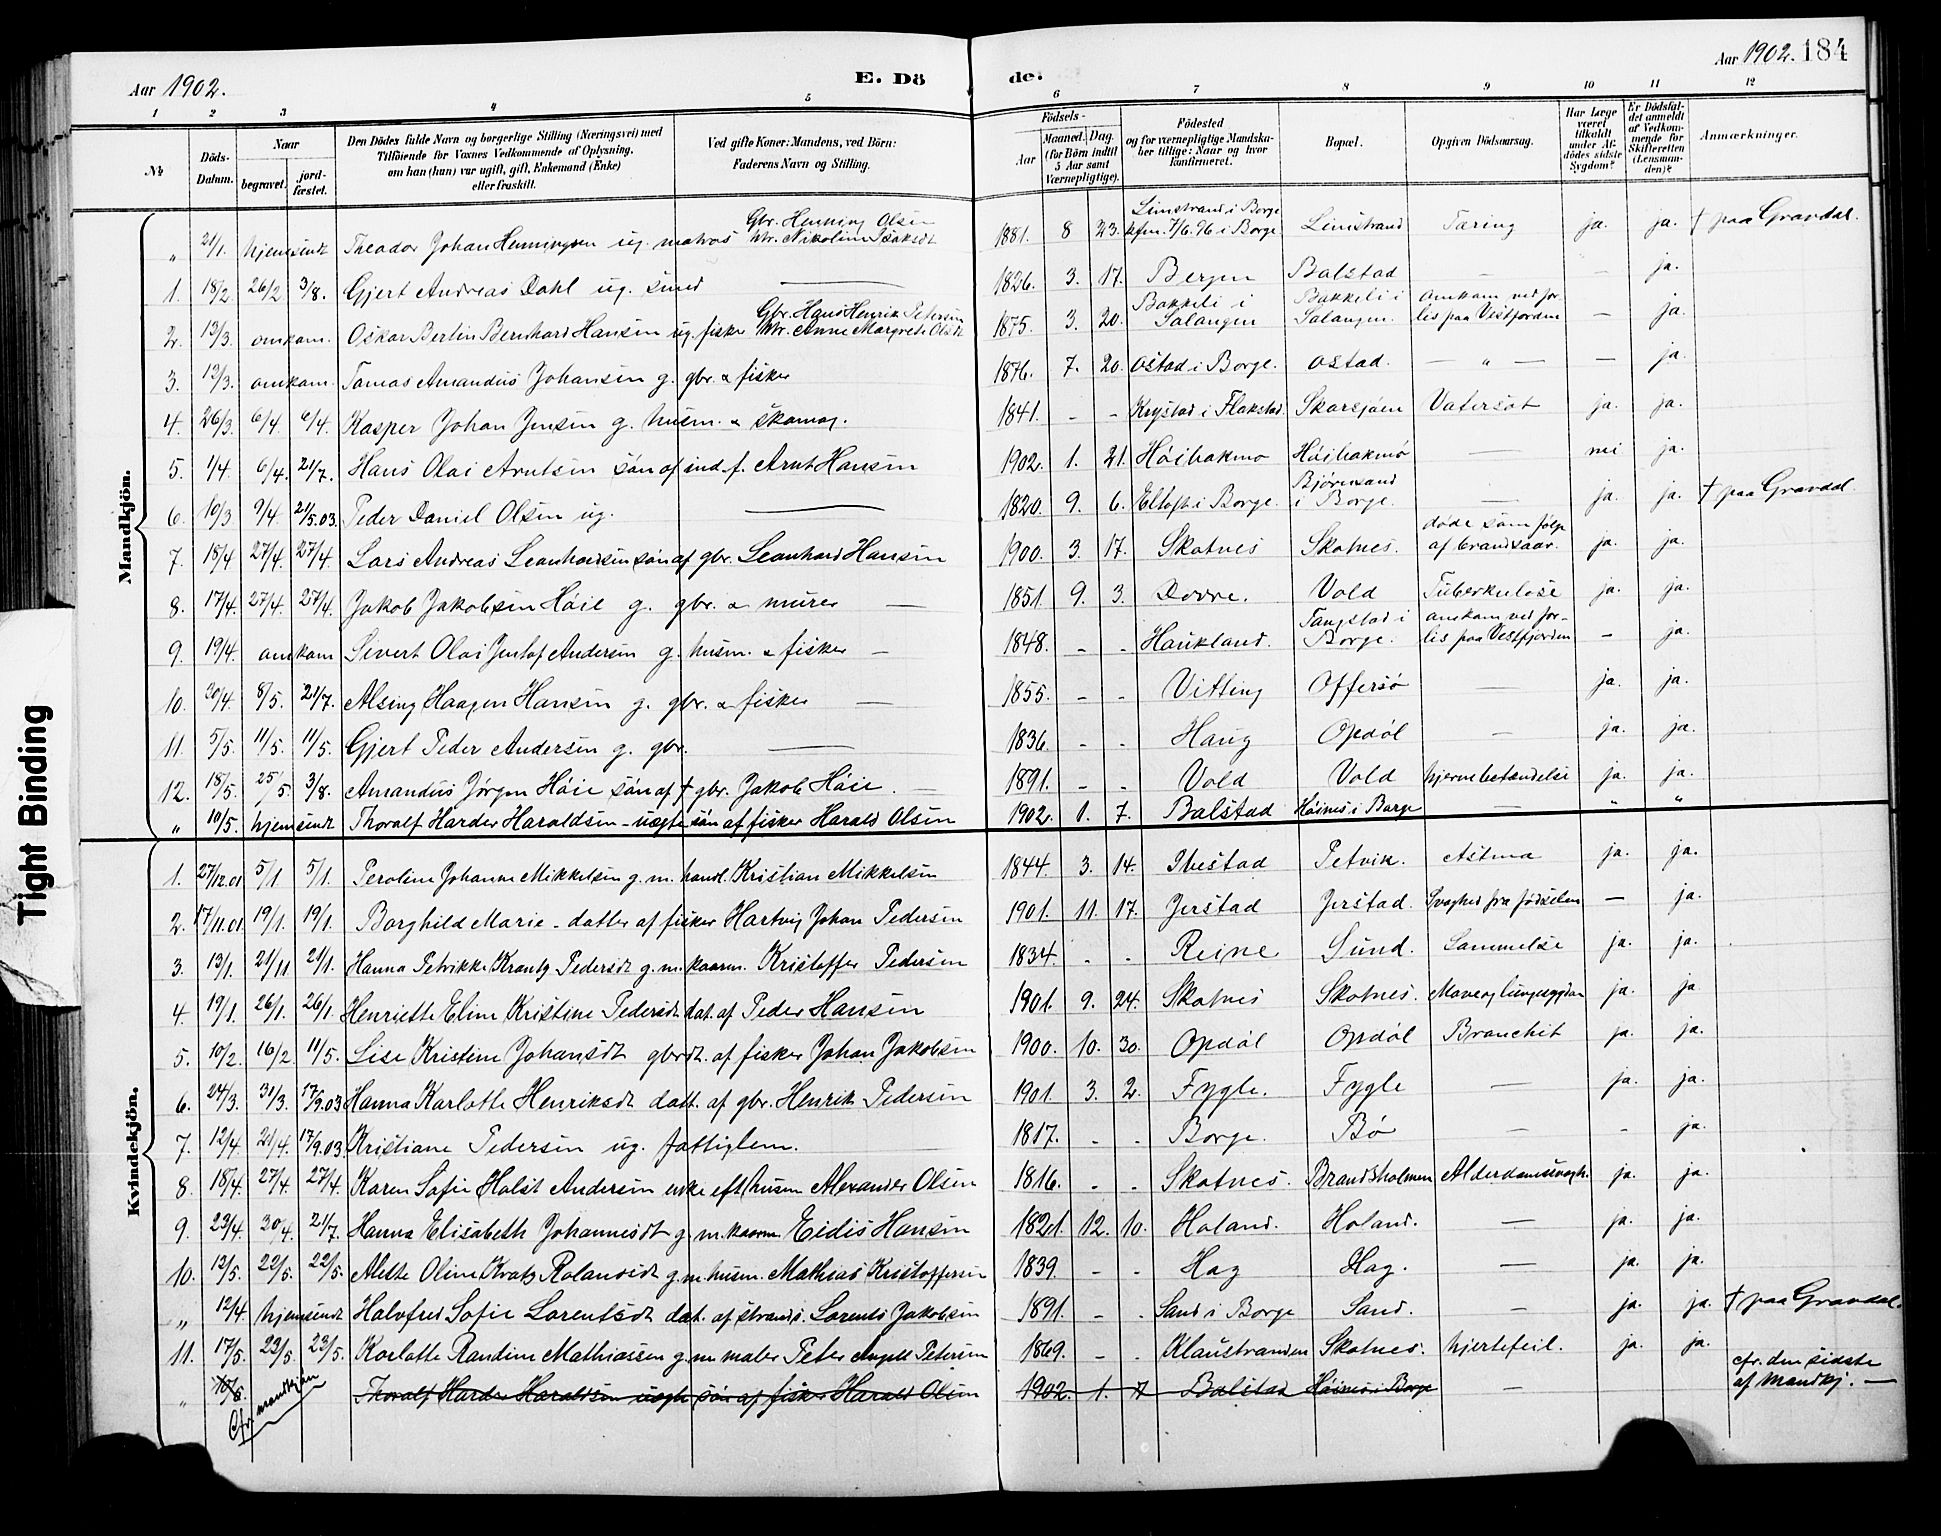 Aar 1902. E. Dö de. Aar 1902. 184
1 2 3 4 5 6 7 8 9 10 11 12
Nr.
Döds-Datum.
Naar
begravet.
jordfæstet.
Den Dödes fulde Navn og borgerlige Stilling (Næringsvei) med
Tilföiende for Voxnes Vedkommende af Oplysning,
om han (hun) var ugift, gift, Enkemand (Enke)
eller fraskilt.
Ved gifte Koner: Mandens, ved Börn:
Faderens Navn og Stilling.
Födsels-
Aar
Maaned. Dag.
(for Börn indtil
5 Aar samt
Værnepligtige).
Födested
og for værnepligtige Mandskaber tillige: Naar og hvor
konfirmeret.
Bopæl.
Opgiven Dödsaarsag.
Har Læge
været
tilkaldt
under Afdödes sidste
Sygdom?
Er Dödsfaldet anmeldt
af Vedkommende for
Skifteretten
(Lensmanden)?
Anmærkninger.
Mandkjön.
" 21/1. hjemsendt Theador Johan Henningsen ug. matros Gbr. Henning Olsen Htr. Nikoline Isaksdt 1881. 8 23. Limstrand i Borge kfm. 7/6.96 i Borge Limstrand Tæring ja. ja. † paa Gravdal.
1. 18/2 26/2 3/8. Gjert Andreas Dahl ug. smed — 1826. 3. 17. Bergen Balstad — — ja.
2. 13/3. omkom. Oskar Bertin Bernhard Hansen ug. fisker Gbr. Hans Henrik Petersen Htr. Anne Margrete Olsdt 1875. 3. 20. Bakkeli i Salangen Bakkeli i Salangen. omkom ved forlis paa Vestfjorden — ja.
3. 13/3. omkom. Tomas Amandus Johansen g. gbr. & fisker 1876. 7. 20. Ostad i Borge. Ostad. — " — — ja.
4. 26/3. 6/4. 6/4. Kasper Johan Jensen g. husm. & skomag. 1841. - - Krystad i Flakstad Skarsjøen Vatersot ja. ja.
5. 1/4. 6/4. 21/7. Hans Olai Arntsen søn af ind.f. Arnt Hansen 1902. 1. 21. Höihakmo Höihakmö — nei ja.
6. 10/3 9/4. 21/5.03. Peder Daniel Olsen ug. — 1820. 9. 6. Eltoft i Borge. Bjørnsand i Borge. — ja. ja. † paa Gravdal.
7. 18/4 27/4. 27/4. Lars Andreas Leonhardsen søn af gbr. Leonhard Hansen 1900. 3. 17. Skotnes Skotnes. døde som følge af brandsaar. ja. ja.
8. 17/4. 27/4. 27/4. Jakob Jakobsen Höie g. gbr. & murer — 1851. 9. 3. Dovre. Vold Tuberkulose ja. ja.
9. 19/4. omkom Sivert Olai Jentof Andersen g. husm. & fisker — 1848. - - Haukland. Tangstad i Borge. omkom ved forlis paa Vestfjorden - ja.
10. 30/4. 8/5. 21/7. Alsing Haagen Hansen g. gbr. & fisker — 1855. - - Vitting Offersö — ja. ja.
11. 5/5. 11/5. 11/5. Gjert Peder Andersen g. gbr. — 1836. - - Haug Opdöl — ja. ja.
12. 18/5. 25/5. 3/8. Amandus Jørgen Höie søn af † gbr. Jakob Höie. — 1891. - - Vold Vold hjernebetændelse ja. ja.
" 10/5. hjemsendt Thoralf Harder Haraldsen - uægte søn af fisker Harald Olsen 1902. 1. 7. Balstad Höines i Borge — " "
Kvindekjön.
1. 27/12.01 5/1 5/1. Peroline Johanne Mikkelsen g. m. handl. Kristian Mikkelsen 1844. 3. 14. Ibestad Petvik. Astma ja. ja.
2. 17/11.01. 19/1. 19/1. Borghild Marie - datter af fisker Hartvig Johan Pedersen 1901. 11. 17. Jerstad Jerstad. Svaghed fra fødselen — ja.
3. 13/1. 21/11 21/1. Hanna Petrikke Krantz Pedersdt g. m. kaarm. Kristoffer Pedersen 1834. - - Reine Sund. Lammelse ja. ja.
4. 19/1. 26/1. 26/1. Henriette Eline Kristine Pedersdt dat. af Peder Hansen 1901. 9. 24. Skotnes Skotnes. Mave og lungesygdom ja. ja
5. 10/2. 16/2 11/5. Lise Kristine Johansdt gbrdt. af fisker Johan Jakobsen 1900. 10. 30. Opdöl Opdöl Bronchit ja. ja.
6. 24/3. 31/3. 17/9.03 Hanna Karlotte Henriksdt datt. af gbr. Henrik Pedersen 1901. 3. 2. Fygle. Fygle — ja. ja.
7. 12/4. 21/4. 17/9.03 Kristiane Pedersen ug. fattiglem. 1817. - - Borge. Bö — - ja.
8. 18/4. 27/4. 27/4. Karen Sofie Holst Andersen enke eft. husm Alexander Olsen 1816. - - Skotnes. Brandsholmen Alderdomssvagh. ja. ja.
9. 23/4. 30/4. 21/7. Hanna Elisabeth Johannesdt g. m. kaarm. Eidis Hansen 1821. 12. 10. Holand. Holand. — ja. ja.
10. 12/5. 22/5. 22/5. Alette Oline Kratz Rolandsdt g. m. husm. Mathias Kristoffersen 1839. - - Hag Hag. — ja. ja.
" 12/4. hjemsendt Halvfred Sofie Lorentsdt dat. af strands. Lorents Jakobsen 1891. - - Sand i Borge Sand. — ja. ja. † paa Gravdal.
11. 17/5. 23/5. 23/5. Karlotte Randine Mathiassen g. m maler Peter Angell Petersen 1869. - - Klaustranden Skotnes. hjertefeil. ja. ja.
" 10/5. Cfr. mandkjön Thoralf Harder Haraldsen uægte søn af fisker Harald Olsen 1902. 1. 7 Balstad Höines i Borge — cfr. den sidste af Mandkj. —
Tight Binding